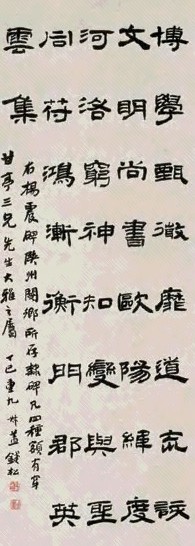 博學甄微靡道不該
文明尚書歐陽緯度
河洛窮神知變與聖
同符鴻漸衡門郡英
雲集
右楊震碑陝州閿鄉所存碑凡四種額有穿
甘亭三兄先生大雅之屬 丁巳重九 叔蓋錢松